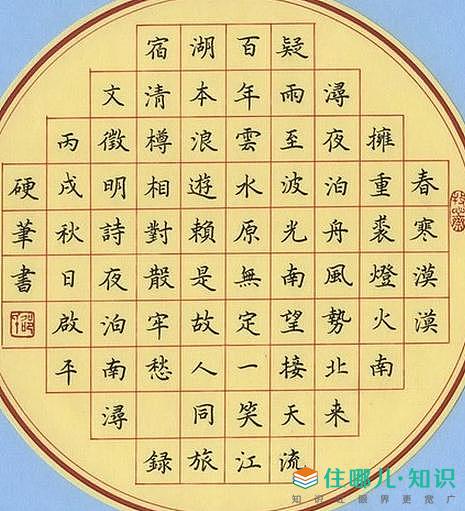 春寒漠漠
擁重裘燈火南
潯夜泊舟風勢北來
疑雨至波光南望接天流
百年雲水原無定一笑江
湖本浪遊賴是故人同旅
宿清樽相對散牢愁録
文徵明詩夜泊南潯
丙戌秋日啟平
硬筆書
住哪儿·知识
知识让眼界更宽广